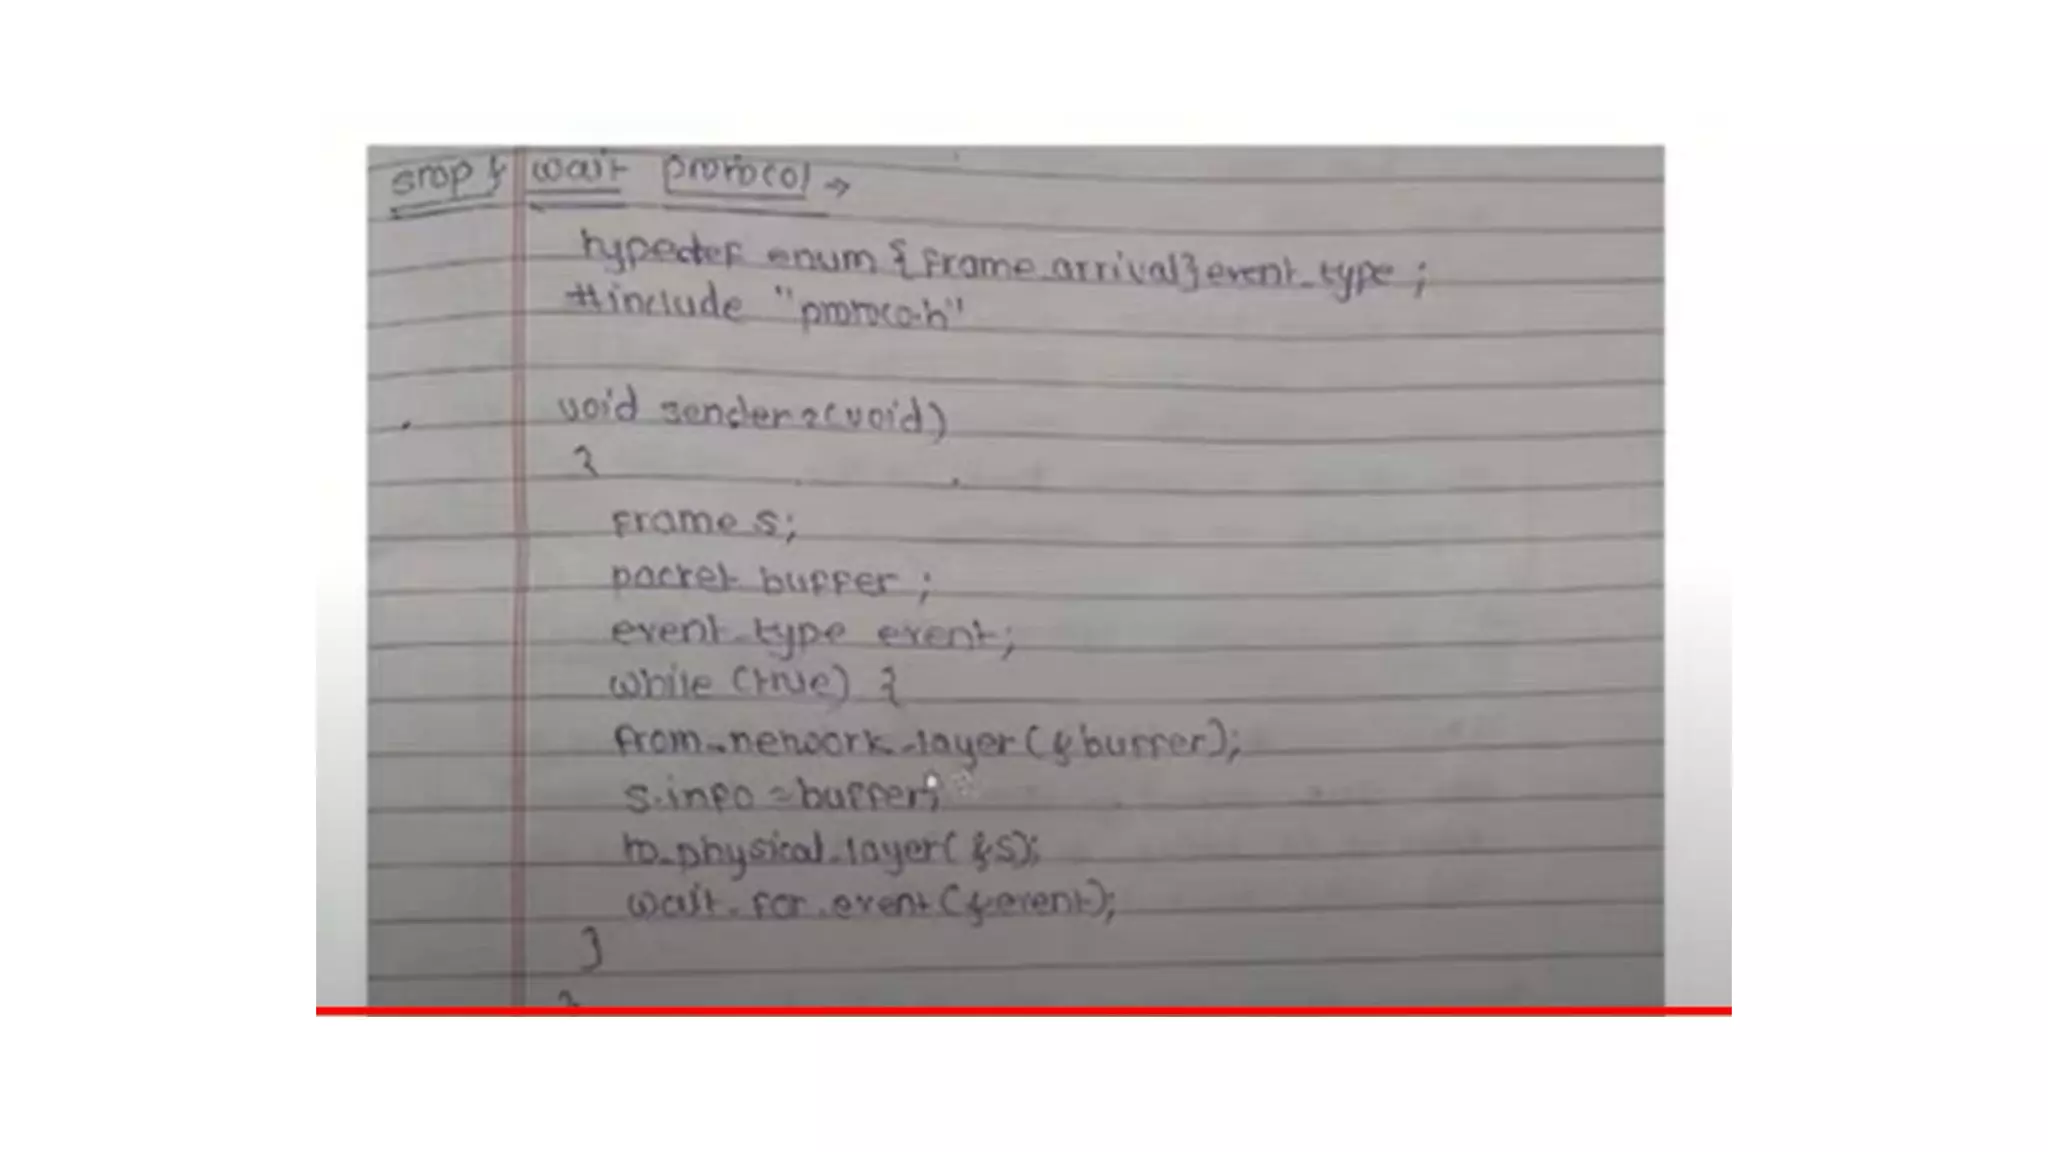 stop & wait protocol →
typedef enum {frame_arrival} event_type ;
#include "protoco.h"
void sender2(void)
{
frame s;
packet buffer ;
event_type event;
while (true) {
from_network_layer(&buffer);
s.info = buffer;
to_physical_layer(&s);
wait_for_event(&event);
}
}